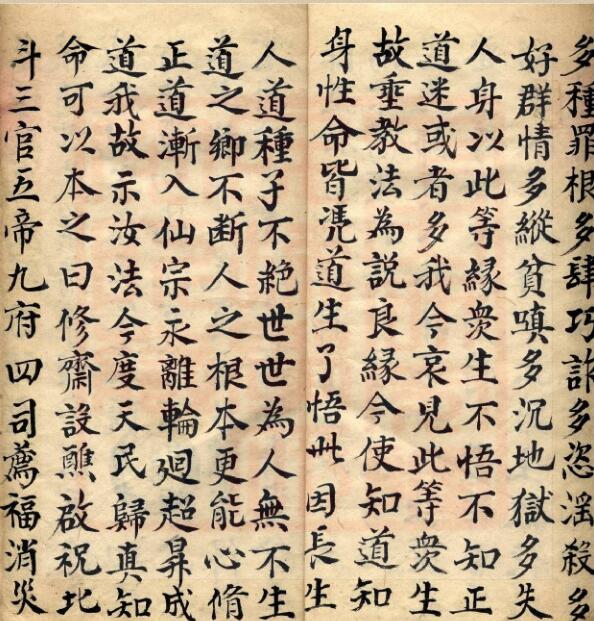 多種罪根多肆巧詐多恣淫殺多
好群情多縱貧嗔多沉地獄多失
人身以此等緣衆生不悟不知正
道迷或者多我今哀見此等衆生
故垂教法為說良緣今使知道知
身性命皆憑道生了悟此因長生
人道種子不絶世世為人無不生
道之鄉不断人之根本更能心脩
正道漸入仙宗永離輪廻超昇成
道我故示汝法今度天民歸真知
命可以本之曰修齋設醮啟祝北
斗三官五帝九府四司薦福消災